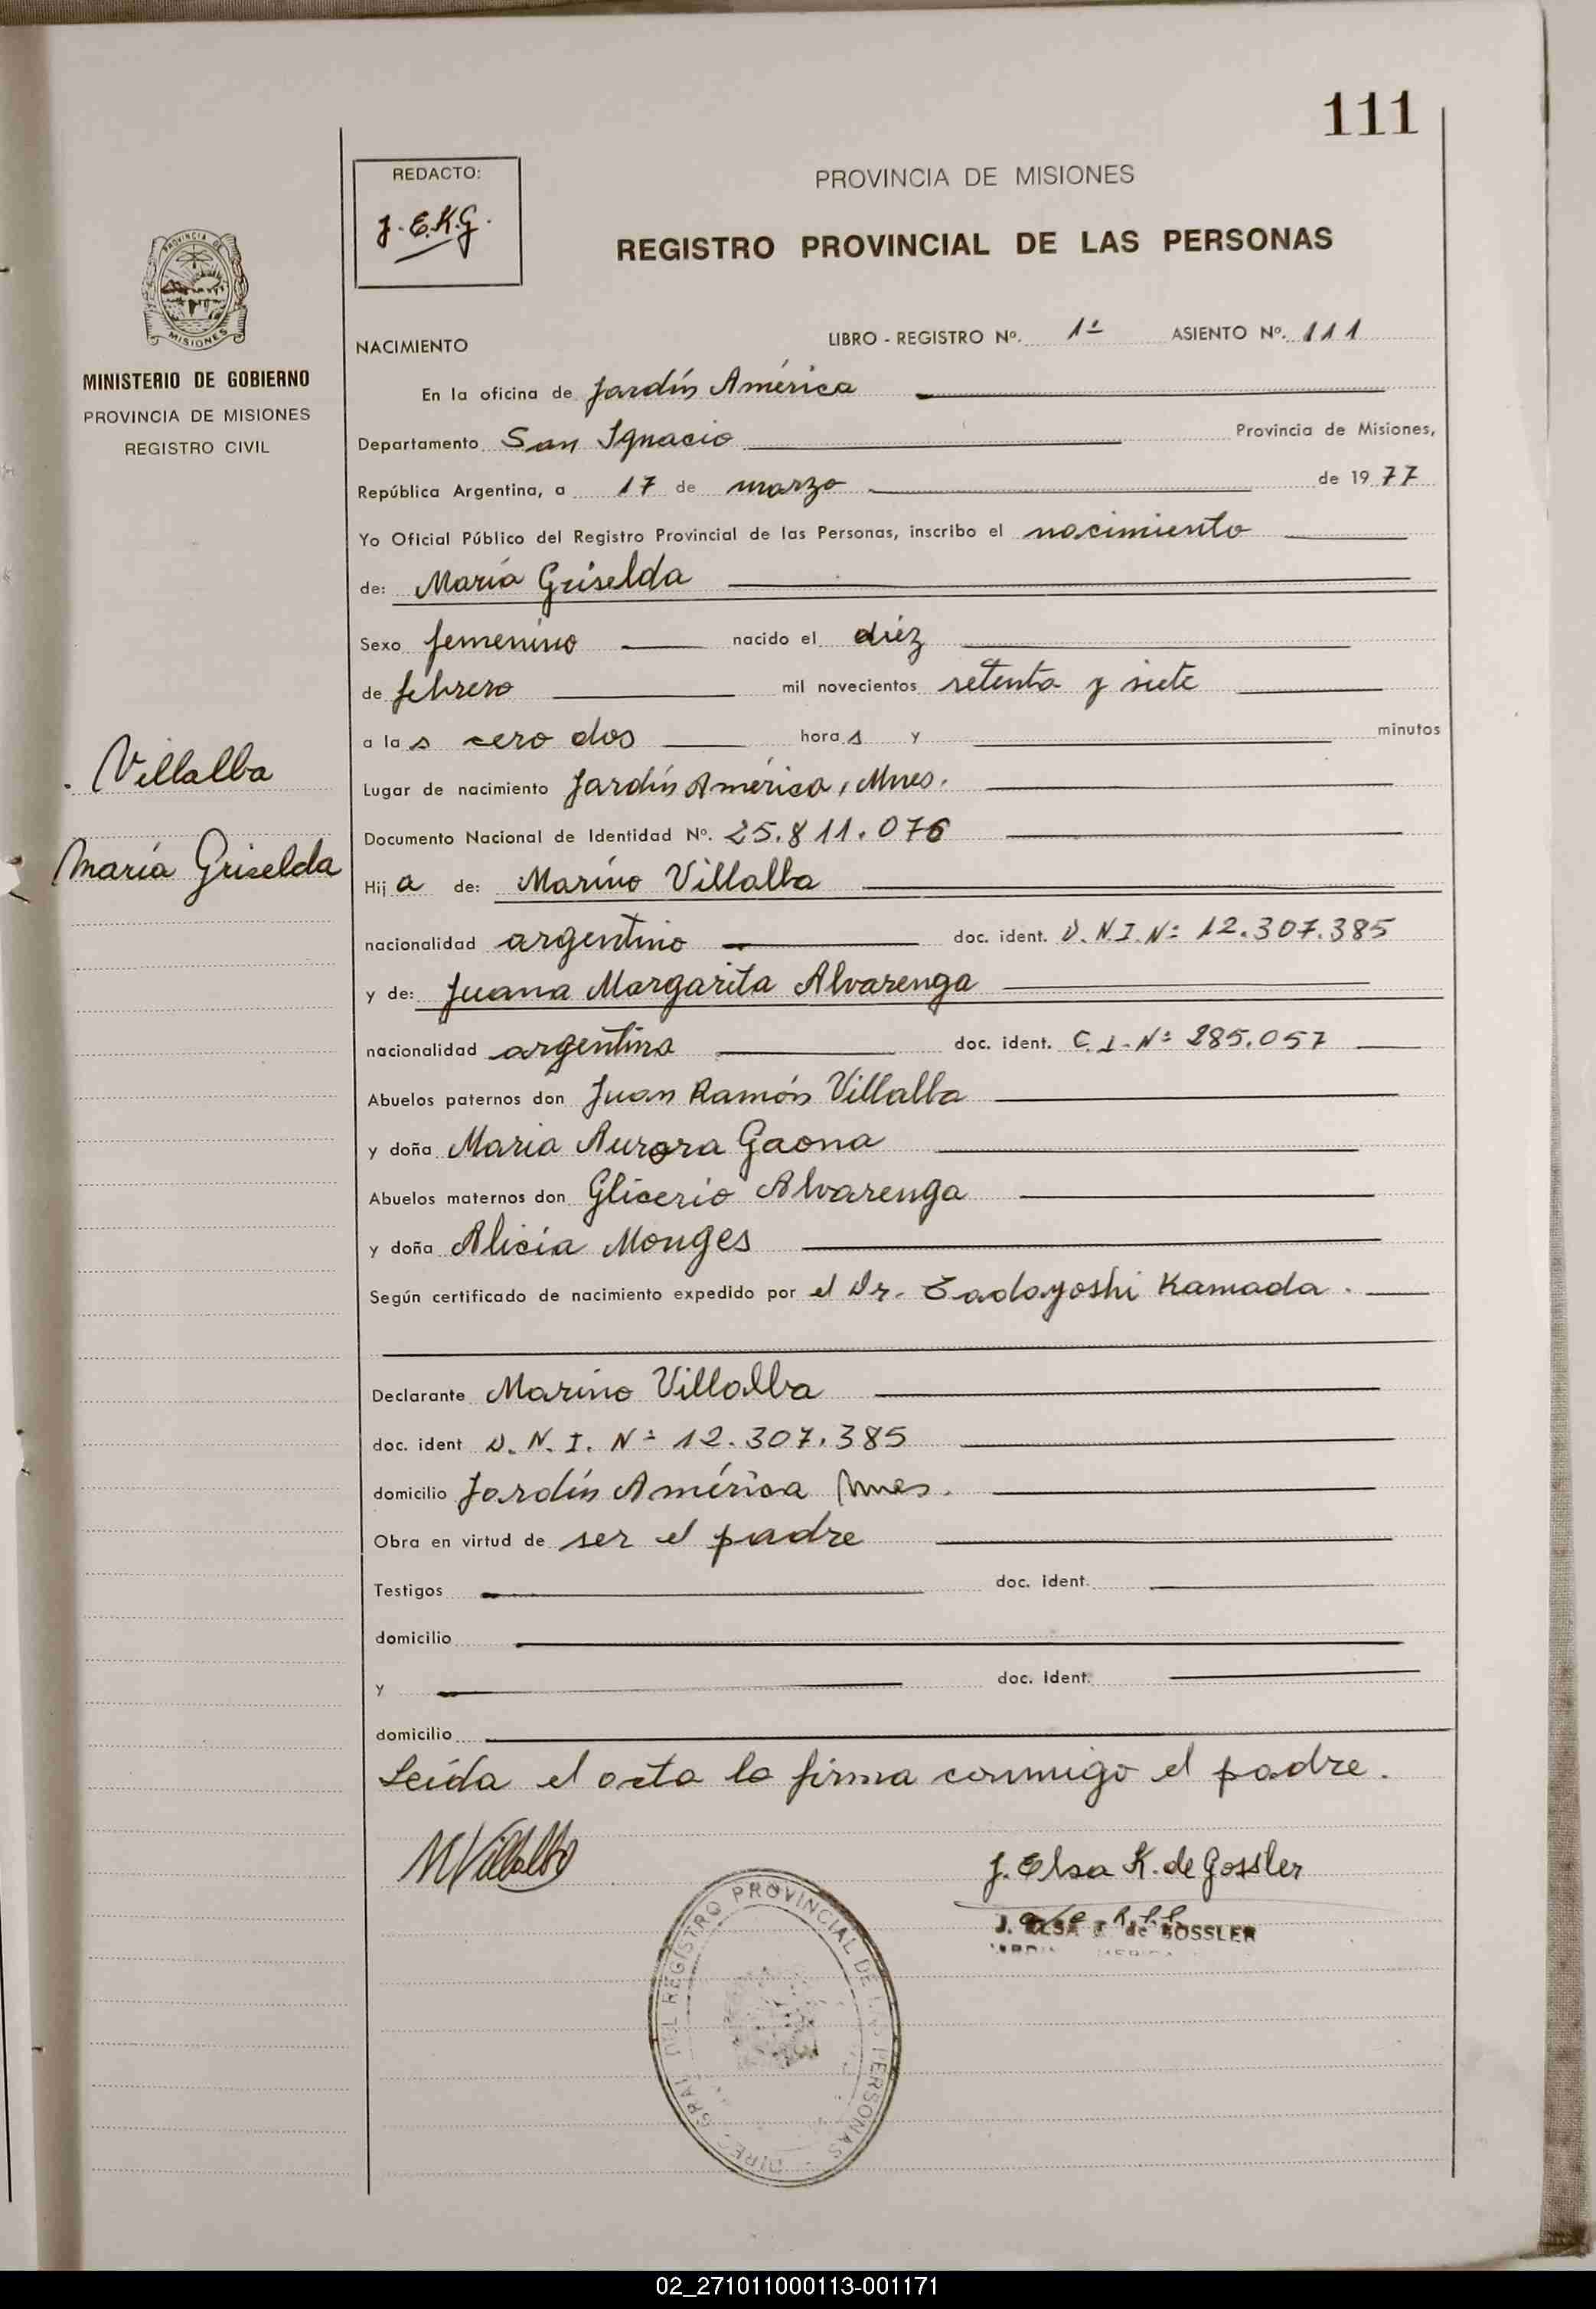 111
REDACTO:
J. E.K.G.
PROVINCIA DE MISIONES
REGISTRO PROVINCIAL DE LAS PERSONAS
PROVINCIA DE
MISIONES
MINISTERIO DE GOBIERNO
PROVINCIA DE MISIONES
REGISTRO CIVIL
Villalba
María Griselda
NACIMIENTO LIBRO - REGISTRO Nº. 1º ASIENTO Nº. 111
En la oficina de Jardín América
Departamento San Ignacio Provincia de Misiones,
República Argentina, a 17 de marzo de 1977
Yo Oficial Público del Registro Provincial de las Personas, inscribo el nacimiento
de: María Griselda
Sexo femenino nacido el diéz
de febrero mil novecientos setenta y siete
a las cero dos horas y minutos
Lugar de nacimiento Jardín América, Mnes.
Documento Nacional de Identidad Nº. 25.811.076
Hija de: Marino Villalba
nacionalidad argentino doc. ident. D.N.I. Nº 12.307.385
y de: Juana Margarita Alvarenga
nacionalidad argentina doc. ident. C.I. Nº 285.057
Abuelos paternos don Juan Ramón Villalba
y doña Maria Aurora Gaona
Abuelos maternos don Glicerio Alvarenga
y doña Alicia Monges
Según certificado de nacimiento expedido por el Dr. Tadayoshi Kamada.
Declarante Marino Villalba
doc. ident D.N.I. Nº 12.307.385
domicilio Jardín América Mnes.
Obra en virtud de ser el padre
Testigos doc. ident.
domicilio
y doc. ident.
domicilio
Leída el acta la firma conmigo el padre.
MVillalba
J. Elsa K. de Gossler
J. ELSA K. de GOSSLER
DIREC. GRAL. DEL REGISTRO PROVINCIAL DE LAS PERSONAS
02_271011000113-001171